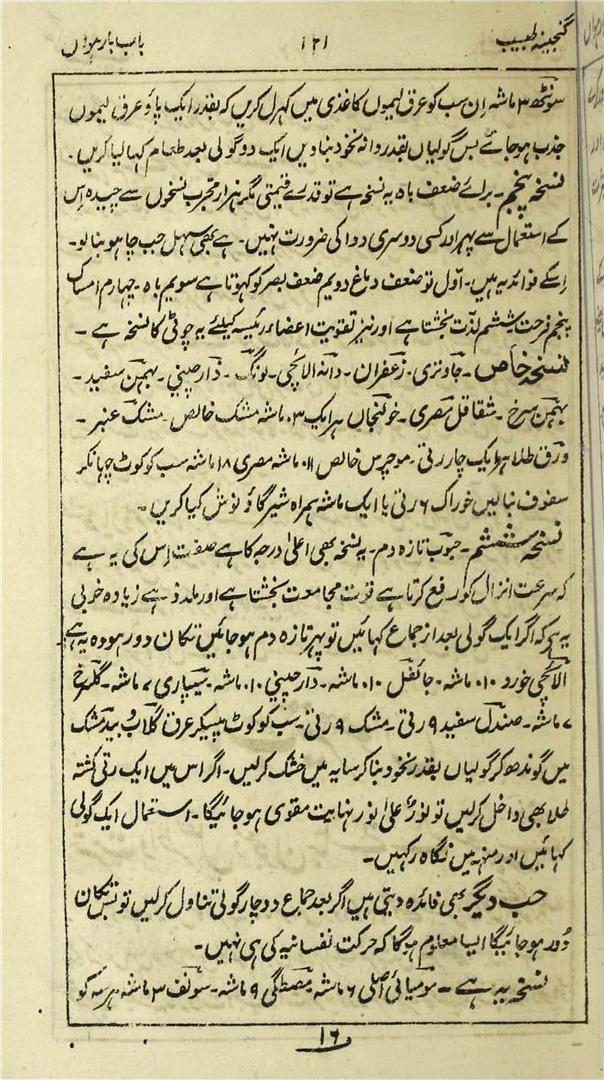 گنجینہ طبیب ۱۲۱ باب بارہواں
سونٹھ ۳ ماشہ اِن سب کو عرق لیموں کاغذی میں کہرل کریں کہ بقدر ایک پاؤ عرق لیموں
جذب ہو جائے بس گولیاں بقدر دانہ نخود بنا دیں ایک دو گولی بعد طعام کہا لیا کریں ۔
نسخہ پنجم ۔ برائے ضعف باہ یہ نسخہ ہے تو قدرے قیمتی مگر ہزار مجرب نسخوں سے چیدہ اِس
کے استعمال سے پہر اور کسی دوسری دوا کی ضرورت نہیں ۔ ہے بھی سہل جب چاہو بنا لو ۔
اِسکے فوائد یہ ہیں ۔ اول تو ضعف دماغ دویم ضعف بصر کو کہوتا ہے سویم باہ ۔ چہارم امساک
پنجم فرحت ششم لذت بخشتا ہے اور نیز تقویت اعضاء رئیسہ کیلئے یہ چوٹی کا نسخہ ہے ۔
نسخہ خاص ۔ جاوتری ۔ زعفران ۔ دانہ الائچی ۔ لونگ ۔ دارچینی ۔ بہمن سفید ۔
بہمن سرخ ۔ شقاقل مصری ۔ خولنجاں ہر ایک ۳ ماشہ مشک خالص ۔ مشک عنبر ۔
ورق طلا ہر ایک چار رتی ۔ موچرس خالص ۱۱ ماشہ مصری ۱۸ ماشہ سب کو کوٹ چہانکر
سفوف بنا لیں خوراک ۶ رتی یا ایک ماشہ ہمراہ شیر گاؤ نوش کیا کریں ۔
نسخہ ششم ۔ حبوب تازہ دم ۔ یہ نسخہ بھی اعلیٰ درجہ کا ہے صفت اِس کی یہ ہے
کہ سرعت انزال کو رفع کرتا ہے قوت مجامعت بخشتا ہے اور ملذذ ہے زیادہ خوبی
یہ ہے کہ اگر ایک گولی بعد از جماع کہائیں تو پہر تازہ دم ہو جائیں تکان دور ہو وہ یہ ہے ۔
الائچی خورد ۱۰ ماشہ ۔ جائفل ۱۰ ماشہ ۔ دارچینی ۱۰ ماشہ ۔ سپیاری ۷ ماشہ ۔ گلسرخ
۷ ماشہ ۔ صندل سفید ۹ رتی ۔ مشک ۹ رتی ۔ سب کو کوٹ پیسکر عرق گلاب بید مشک
میں گوندھ کر گولیاں بقدر نخود بنا کر سایہ میں خشک کر لیں ۔ اگر اس میں ایک رتی کشتہ
طلا بھی داخل کر لیں تو نورٌ علیٰ نور نہایت مقوی ہو جائیگا ۔ استعمال ایک گولی
کہائیں اور منہ میں نگاہ رکہیں ۔
حب دیگر بھی فائدہ دیتی ہیں اگر بعد جماع دو چار گولی تناول کر لیں تو تکان
دُور ہو جائیگا ایسا معلوم ہوگا کہ حرکت نفسانیہ کی ہی نہیں ۔
نسخہ یہ ہے ۔ مومیائی اصلی ۶ ماشہ ۔ مصطگی ۹ ماشہ ۔ سونف ۳ ماشہ ہر سہ کو
۱۶